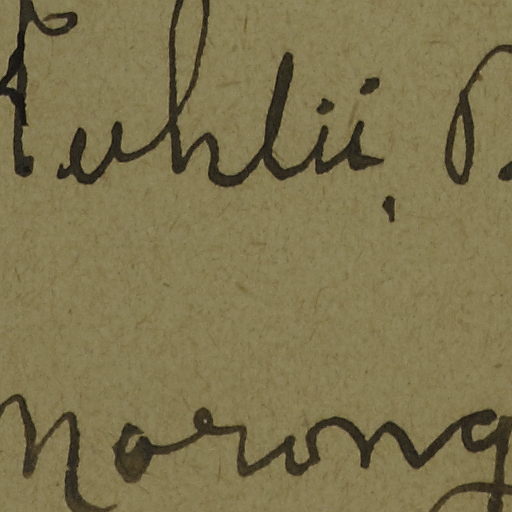 Kuhlii,
Morong